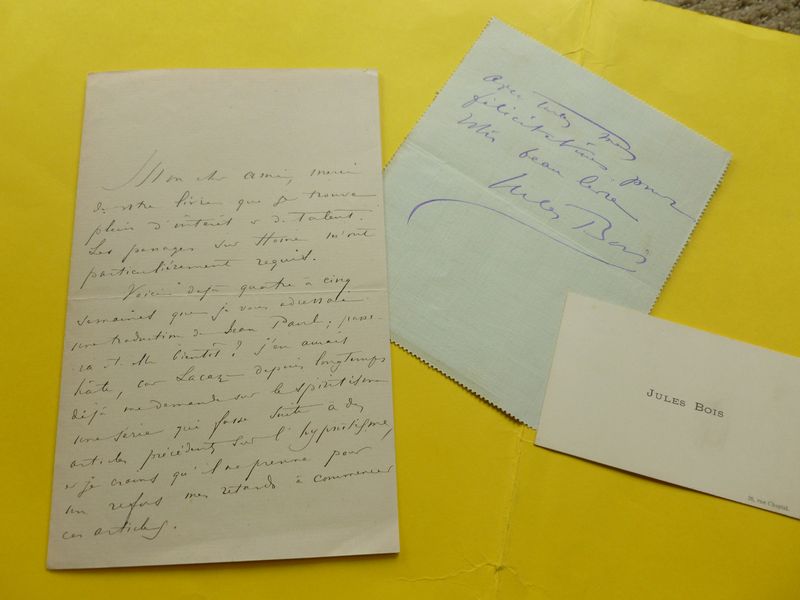 Mon cher ami, merci
de votre livre que je trouve
plein d'intérêt & de talent.
Les passages sur Home m'ont
particulièrement requis.
Voici déjà quatre à cinq
semaines que je vous adressai
une traduction de Jean Paul; passe-
ra-t-elle bientôt? j'en aurais
hâte, car Lacaze depuis longtemps
déjà me demande sur le spiritisme
une série qui fasse suite à des
articles précédents sur l'hypnotisme,
et je crains qu'il ne prenne pour
un refus mes retards à commencer
ces articles.
Avec toutes mes
félicitations pour
votre beau livre
Jules Bois
JULES BOIS
rue Chaptal.